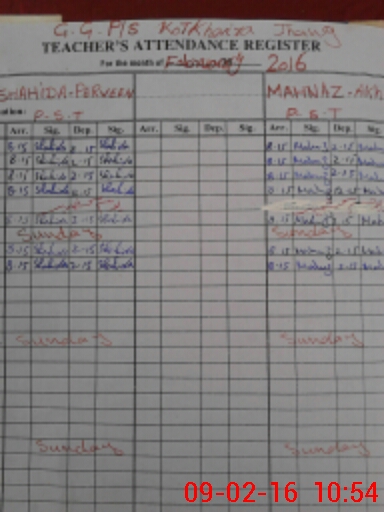 G.G. P/S KotKhanza Jhang
TEACHER'S ATTENDANCE REGISTER
For the month of February 2016
SHAHIDA-PERVEEN MAHNAZ-Akh
P.S.T P.S.T
Arr. Sig. Dep. Sig. Arr. Sig. Dep. Sig. Arr. Sig. Dep. Sig.
8-15 Shahida 2-15 Shahida 8-15 Mahnaz 2-15 Mah
8-15 Shahida 2-15 Shahida 8-15 Mahnaz 2-15 Mah
8-15 Shahida 2-15 Shahida 8-15 Mahnaz 2-15 Mah
8-15 Shahida 2-15 Shahida 8-15 Mahnaz 2-15 Mah
8-15 Shahida 2-15 Shahida 8-15 Mahnaz 2-15 Mah
Sunday Sunday
8-15 Shahida 2-15 Shahida 8-15 Mahnaz 2-15 Mah
8-15 Shahida 2-15 Shahida 8-15 Mahnaz 2-15 Mah
Sunday Sunday
Sunday Sunday
09-02-16 10:54